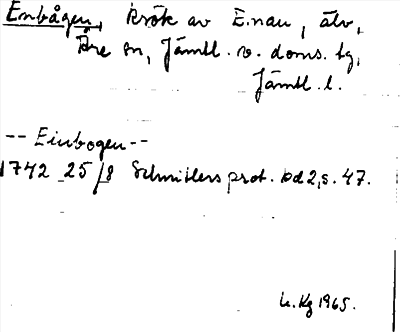 Enbågen, krök av Enan, älv,
Åre sn, Jämtl. v. doms. tg,
Jämtl. l.
-- Einbogen --
1742 25/8 Schnitlers prot. bd 2, s. 47.
1965.